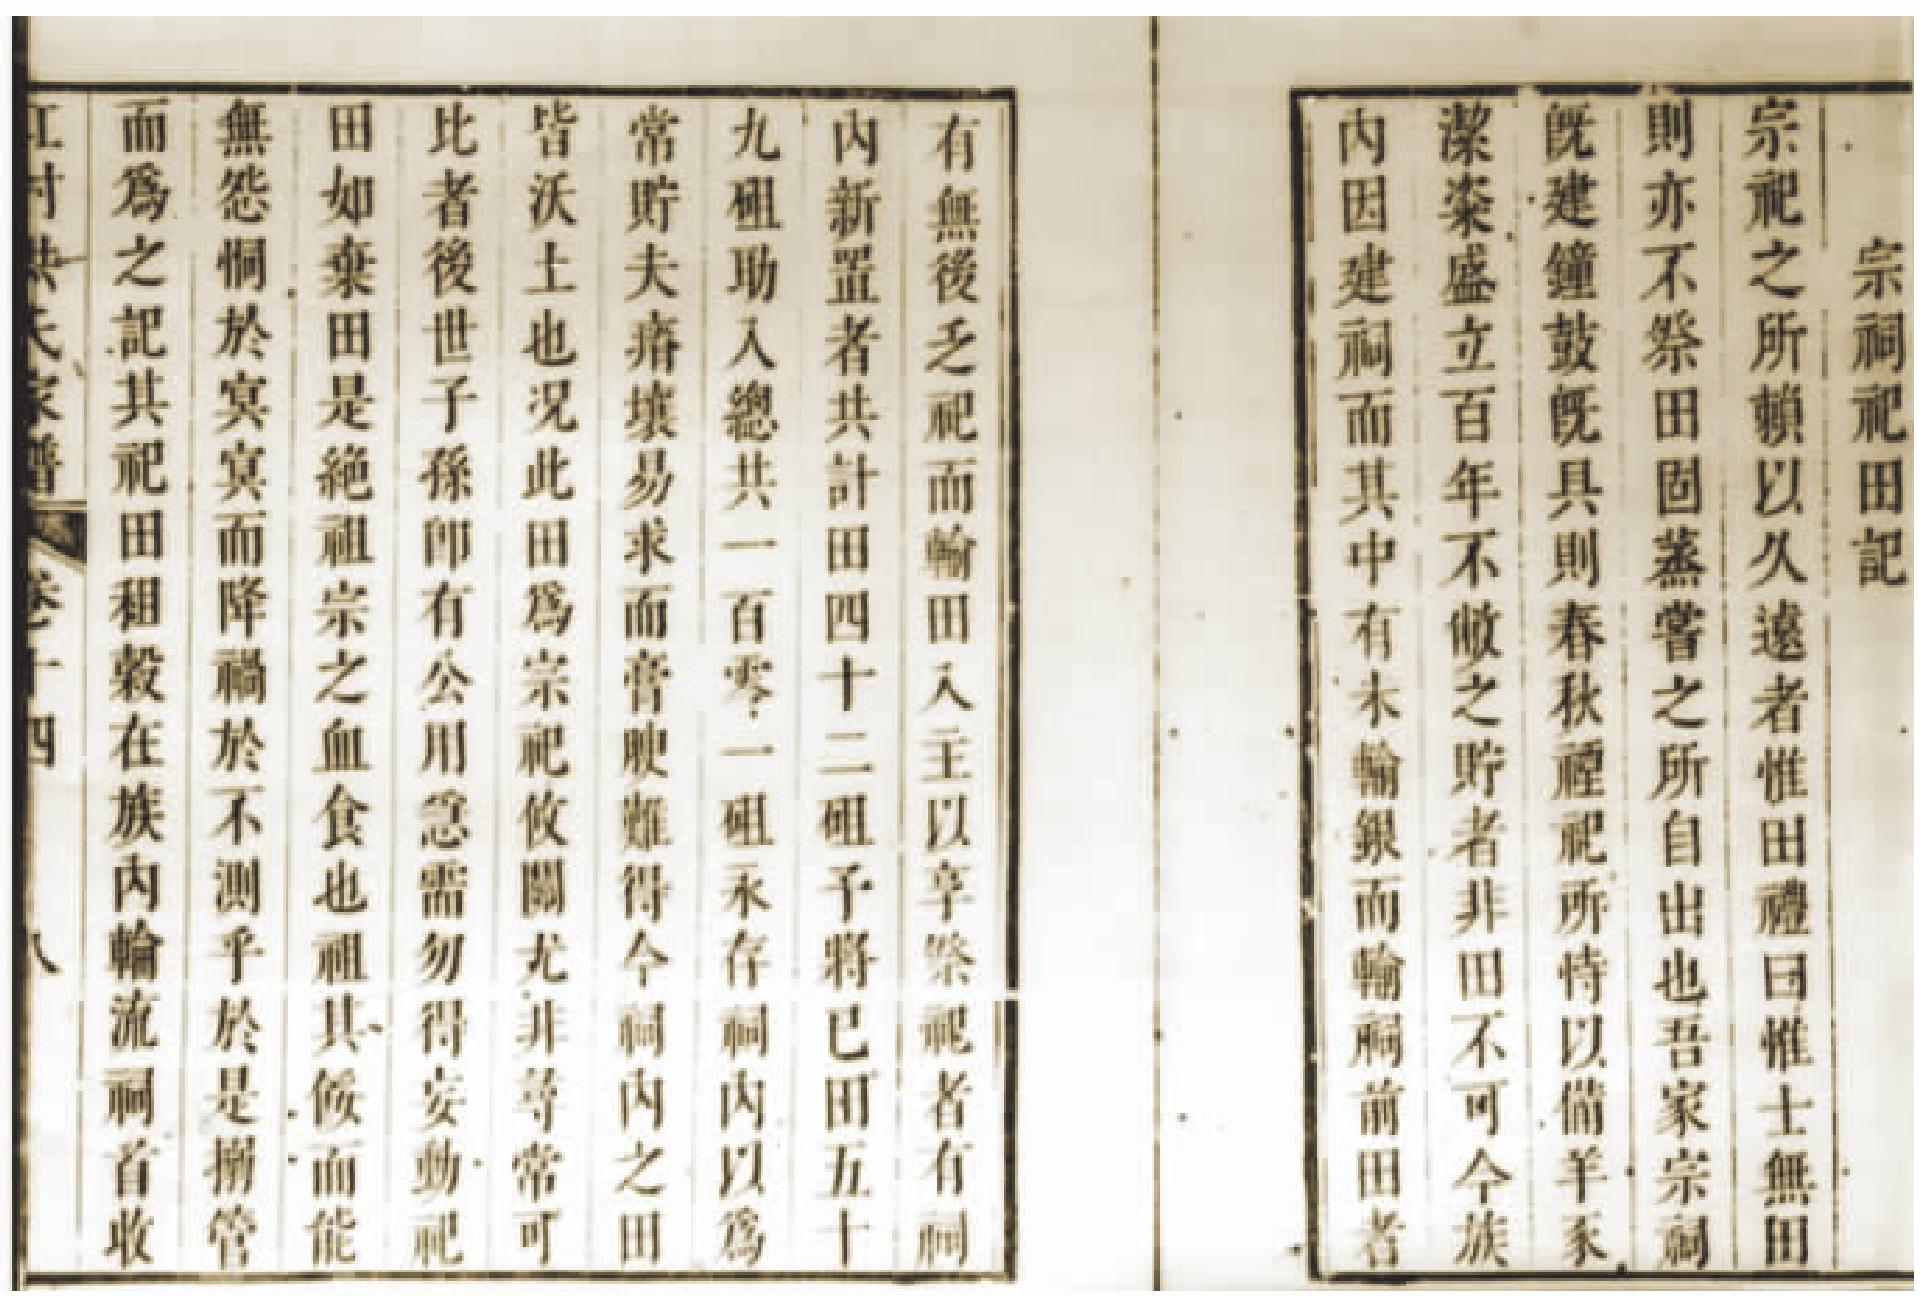 宗祠祀田記
宗祀之所賴以久遠者惟田禮曰惟士無田
則亦不祭田固蒸嘗之所自出也吾家宗祠
旣建鐘鼓旣具則春秋禋祀所恃以備羊豕
潔粢盛立百年不敝之貯者非田不可今族
內因建祠而其中有未輸銀而輸祠前田者
有無後乏祀而輸田入主以享祭祀者有祠
內新置者共計田四十二砠予將已田五十
九砠助入總共一百零一砠永存祠內以爲
常貯夫瘠壤易求而膏腴難得今祠內之田
皆沃土也況此田爲宗祀攸關尤非尋常可
比者後世子孫卽有公用急需勿得妄動祀
田如棄田是絕祖宗之血食也祖其餒而能
無怨恫於冥冥而降禍於不測乎於是搦管
而爲之記其祀田租穀在族內輪流祠首收
江村洪氏家譜 卷十四 八